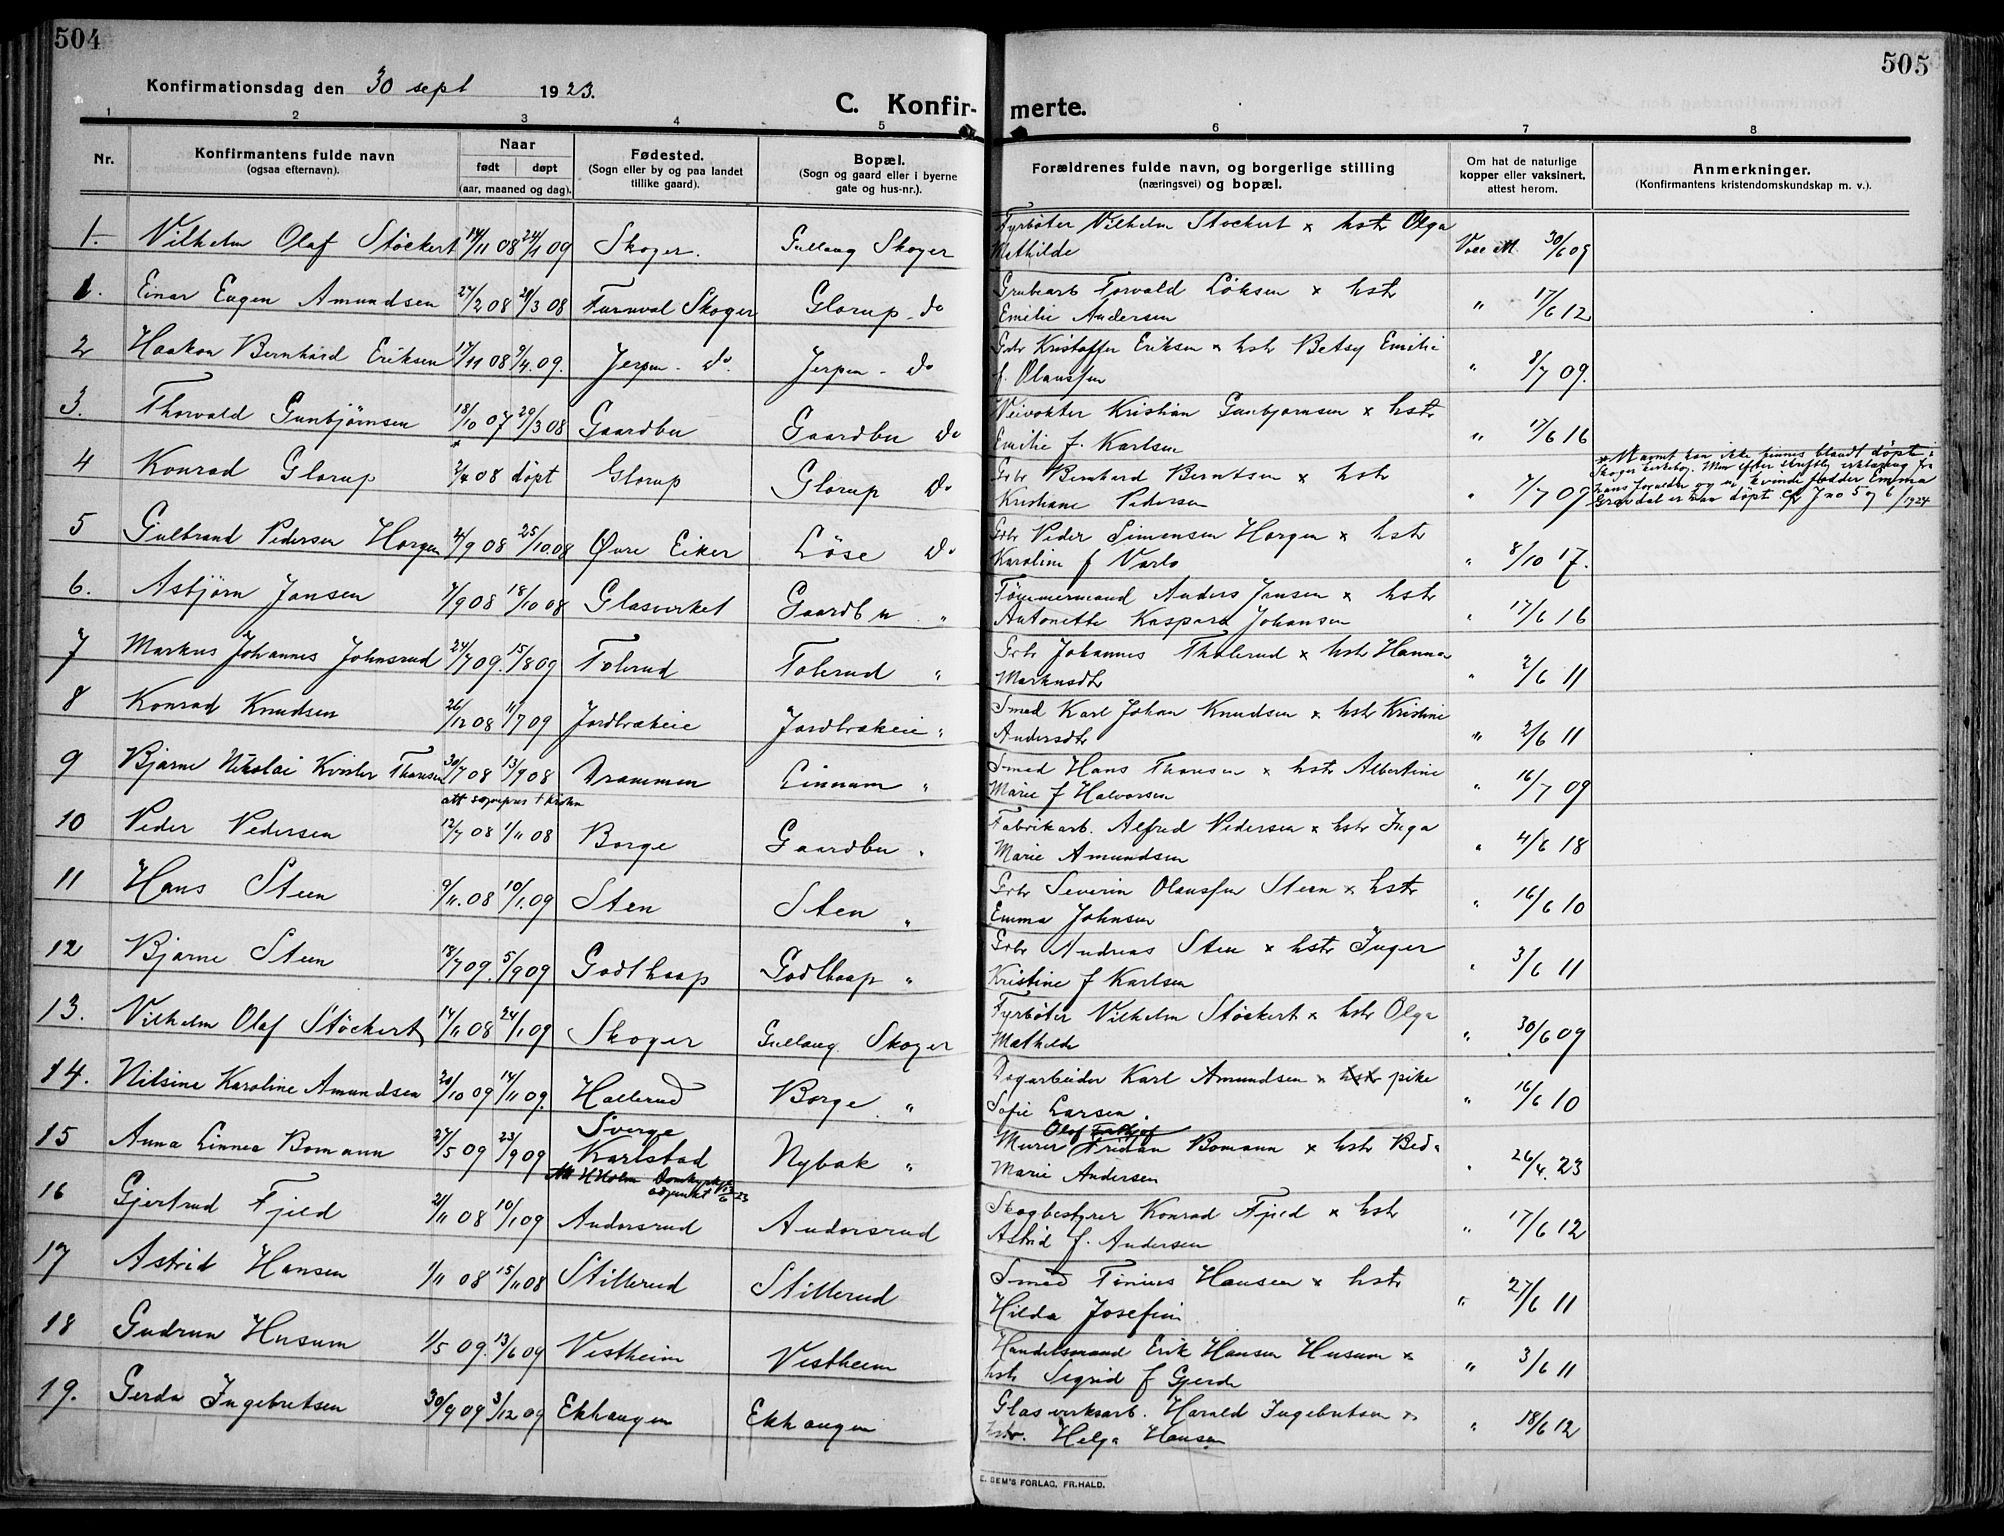 504
505
Konfirmationsdag den 30 sept 1923.
C. Konfir-merte.
1 2 3 4 5 6 7 8
Nr.
Konfirmantens fulde navn
(ogsaa efternavn).
Naar
født døpt
(aar, maaned og dag).
Fødested.
(Sogn eller by og paa landet
tillike gaard).
Bopæl.
(Sogn og gaard eller i byerne
gate og hus-nr.).
Forældrenes fulde navn, og borgerlige stilling
(næringsvei) og bopæl.
Om hat de naturlige
kopper eller vaksinert,
attest herom.
Anmerkninger.
(Konfirmantens kristendomskundskap m. v.).
1. Vilhelm Olaf Støckert 14/11 08 24/1 09 Skoger. Gullaug Skoger Fyrbøter Vilhelm Stockert x hstr Olga
Mathilde 30/6 09
1. Einar Eugen Amundsen 27/2 08 29/3 08 Furuvol Skoger Glorup do Grubearb Torvald Løksen x hstr
Emilie Andersen " 17/6 12
2 Haakon Bernhard Eriksen 17/11 08 9/4 09. Jerpen - do. Jerpen - do Gbr Kristoffer Eriksen x hstr Betsy Emilie
f. Olaussen " 8/7 09.
3. Thorvald Gunbjørnsen 18/10 07 29/3 08 Gaardbu Gaardbu do Veivokter Kristian Gunbjørnsen x hstr
Emilie f. Karlsen " 17/6 16
4 Konrad Glorup 2/4 08 døpt Glorup Glorup do Gbr Bernhard Berntsen x hstr
Kristiane Pedersen " 7/7 09
* Navnet kan ikke finnes blandt døpte i
Skoger kirkebog. Men efter skriftlig erklæring fra
hans forældre og en kvinde fadder Emma
Grøvdal er han døpt cfr J no 5 og 6/1924
5 Gulbrand Pedersen Horgen 4/9 08 25/10 08 Øvre Eiker Løse do Gbr Peder Simensen Horgen x hstr
Karoline f Varlo " 8/10 17.
6. Asbjørn Jansen 7/9 08 18/10 08 Glasverket Gaardbu " Tømmermand Anders Jansen x hstr
Antonette Kaspara Johansen " 17/6 16
7 Markus Johannes Johnsrud 24/7 09. 15/8 09 Tolerud Tolerud " Gbr Johannes Tholerud x hstr Hanna
Markusdtr " 2/6 11
8 Konrad Knudsen 26/12 08 11/7 09 Jordbrækeie Jordbrækeie " Smed Karl Johan Knudsen x hstr Kristine
Andersdtr " 2/6 11
9 Bjarne Nikolai Kvisler Thoresen 30/7 08 13/9 08 Drammen Linnum " Smed Hans Thoresen x hstr Albertine
Marie f Halvorsen " 16/7 09
10 Peder Pedersen 12/7 08 1/11 08 Borge Gaardbu " Fabrikarb. Alfred Pedersen x hstr Inga
Marie Amundsen " 4/6 18
11 Hans Steen 9/11 08 10/1 09 Sten Sten " Gbr Severin Olaussen Steen x hstr
Emma Johnsen " 16/6 10
12 Bjarne Steen 18/7 09. 5/9 09 Godthaap Godthaap " Gbr Andreas Sten x hstr Inger
Kristine f Karlsen " 3/6 11
13. Vilhelm Olaf Støckert 14/11 08 24/1 09 Skoger Gullaug Skoger Fyrbøter Vilhelm Støckert x hstr Olga
Mathilde " 30/6 09
14. Nilsine Karoline Amundsen 20/10 09 14/11 09. Hallerud Borge " Dagarbeider Karl Amundsen x hstr pike
Sofie Larsen. " 16/6 10
15 Anna Linnea Bomann 27/5 09 23/9 09 Sverge
Karlstad Nybak " Murer Olof Bomann x hstr Beda
Marie Andersen " 26/4. 23
16 Gjertrud Fjeld 21/11 08 10/1 09 Andorsrud Andorsrud Skogbestyrer Konrad Fjeld x hstr
Astrid f. Andersen " 17/6 12
17 Astrid Hansen 1/11 08 15/11 08 Stillerud Stillerud Smed Tinius Hansen x hstr
Hilda Josefine " 27/6 11
18 Gudrun Husum 1/5 09. 13/6 09 Vestheim Vestheim Handelsmand Erik Hansen Husum x
hstr Sigrid f Gjerde " 3/6 11
19. Gerda Ingebretsen 30/9 09 3/12 09 Ekhaugen Ekhaugen Glasverksarb. Harald Ingebretsen x
hstr. Helga Hansen " 18/6 12
E. SEM'S FORLAG, FR.HALD.